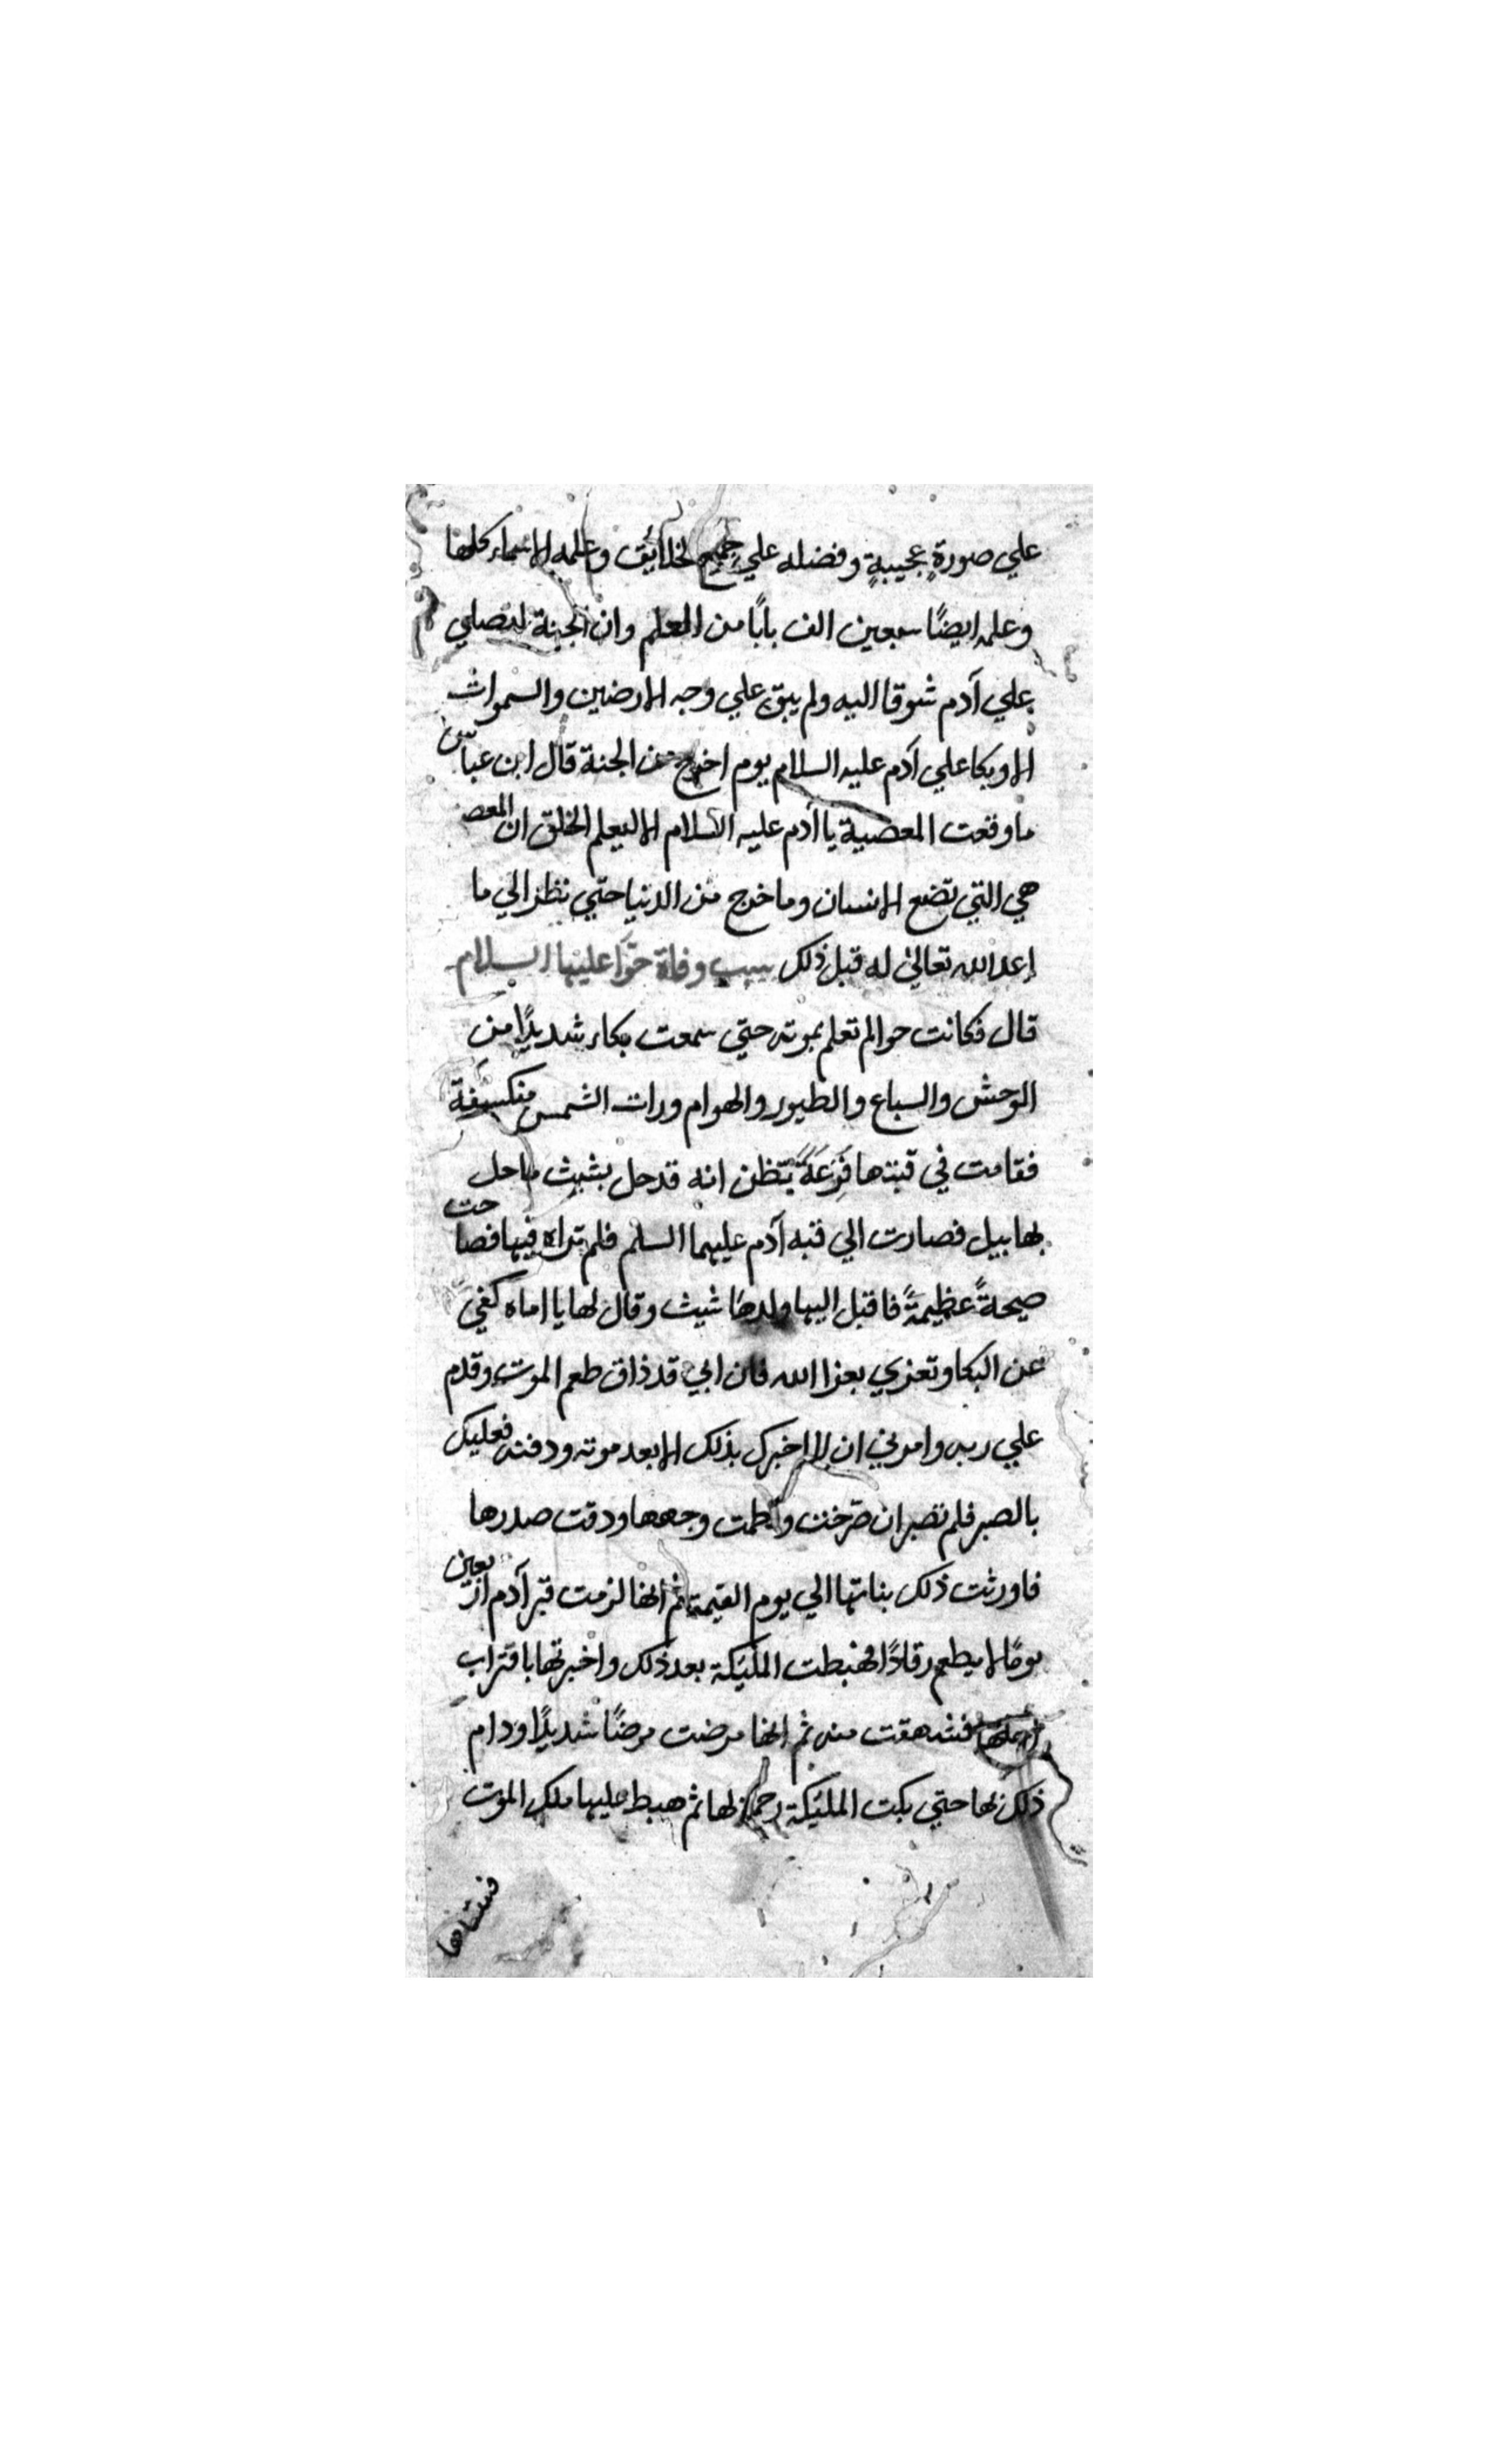 علي صورةٍ عجيبةٍ وفضله علي جميع الخلائق وعلمه الاسماء كلها
وعلمه ايضًا سبعين الف بابًا من العلم وان الجنة لتصلي
علي آدم شوقا اليه ولم يبق علي وجه الارضين والسموات
الا وبكا علي آدم عليه السلام يوم اخرج من الجنة قال ابن عباس
ما وقعت المعصية يا آدم عليه السلام الا ليعلم الخلق ان المعصـ
هي التي تضع الانسان وما خرج من الدنيا حتي نظر الي ما
اعد الله تعالي له قبل ذلك سبب وفاة حوّآ عليها السلام
قال فكانت حوا لم تعلم بموته حتي سمعت بكاء شديدًا من
الوحش والسباع والطيور والهوام ورات الشمس منكسفة
فقامت في قبتها فَزِعَةً تظن انه قد حل بشيث ما حل
بهابيل فصارت الي قبه آدم عليهما السلم فلم تراه فيها فصاحت
صيحةً عظيمةً فاقبل اليها ولدها شيث وقال لها يا اماه كفي
عن البكا وتعزي بعزا الله فان ابي قد ذاق طعم الموت وقدم
علي ربه وامرني ان لا اخبرك بذلك الا بعد موته ودفنه فعليك
بالصبر فلم تصبر ان صرخت ولطمت وجهها ودقت صدرها
فاورثت ذلك بناتها الي يوم القيمة ثم انها لزمت قبر آدم اربعين
يومًا لا يطعم رقادًا فهبطت المليكة بعد ذلك واخبرتها باقتراب
اجلها فشهقت منه ثم انها مرضت مرضًا شديدًا ودام
ذلك لها حتي بكت المليكة رحمة لها ثم هبط عليها ملك الموت